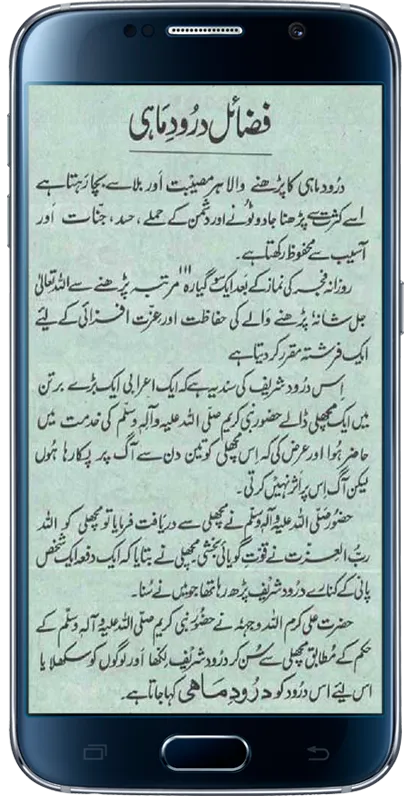 فضائل درُود مَاہی
درُود ماہی کا پڑھنے والا ہر مصیبت اَور بلا سے بچا رَہتا ہے
اسے کثرت سے پڑھنا جادو ٹونے اور دشمن کے حملے، حسد، جنّات اَور
آسیب سے محفوظ رکھتا ہے۔
روزانہ فجر کی نماز کے بَعد ایک سَو گیارہ ۱۱۱ مرتبہ پڑھنے سے اللہ تعالیٰ
جل شانہٗ پڑھنے وَالے کی حفاظت اور عزّت افزائی کے لیٔے
ایک فرشتہ مقرر کر دیتا ہے
اِس درُود شریف کی سند یہ ہے کہ ایک اعرابی ایک بڑے برتن
میں ایک مچھلی ڈالے حضور نبی کریم صلی اللہ علیہ وآلہ وسلّم کی خدمت میں
حاضر ہُوا اور عرض کی کہ اِس مچھلی کو تین دن سے آگ پر پکا رہا ہُوں
لیکن آگ اِس پر اَثر نہیں کرتی۔
حضُور صلّی اللہ علیہ وآلہٖ وسلّم نے مچھلی سے دریافت فرمایا تو مچھلی کو اللہ
ربُّ العزّت نے قوّتِ گویائی بخشی مچھلی نے بتایا کہ ایک دفعہ ایک شخص
پانی کے کنارے درُود شریف پڑھ رہا تھا جو میں نے سُنا۔
حضرت علی کرم اللہ وجہہٗ نے حضُور نبی کریم صلّی اللہ علیہ وآلہ وسلّم کے
حکم کے مُطابق مچھلی سے سُن کر درُود شریف لکھا اَور لوگوں کو سکھلایا
اس لیٔے اس درُود کو درُودِ مَاہی کہا جاتا ہے۔